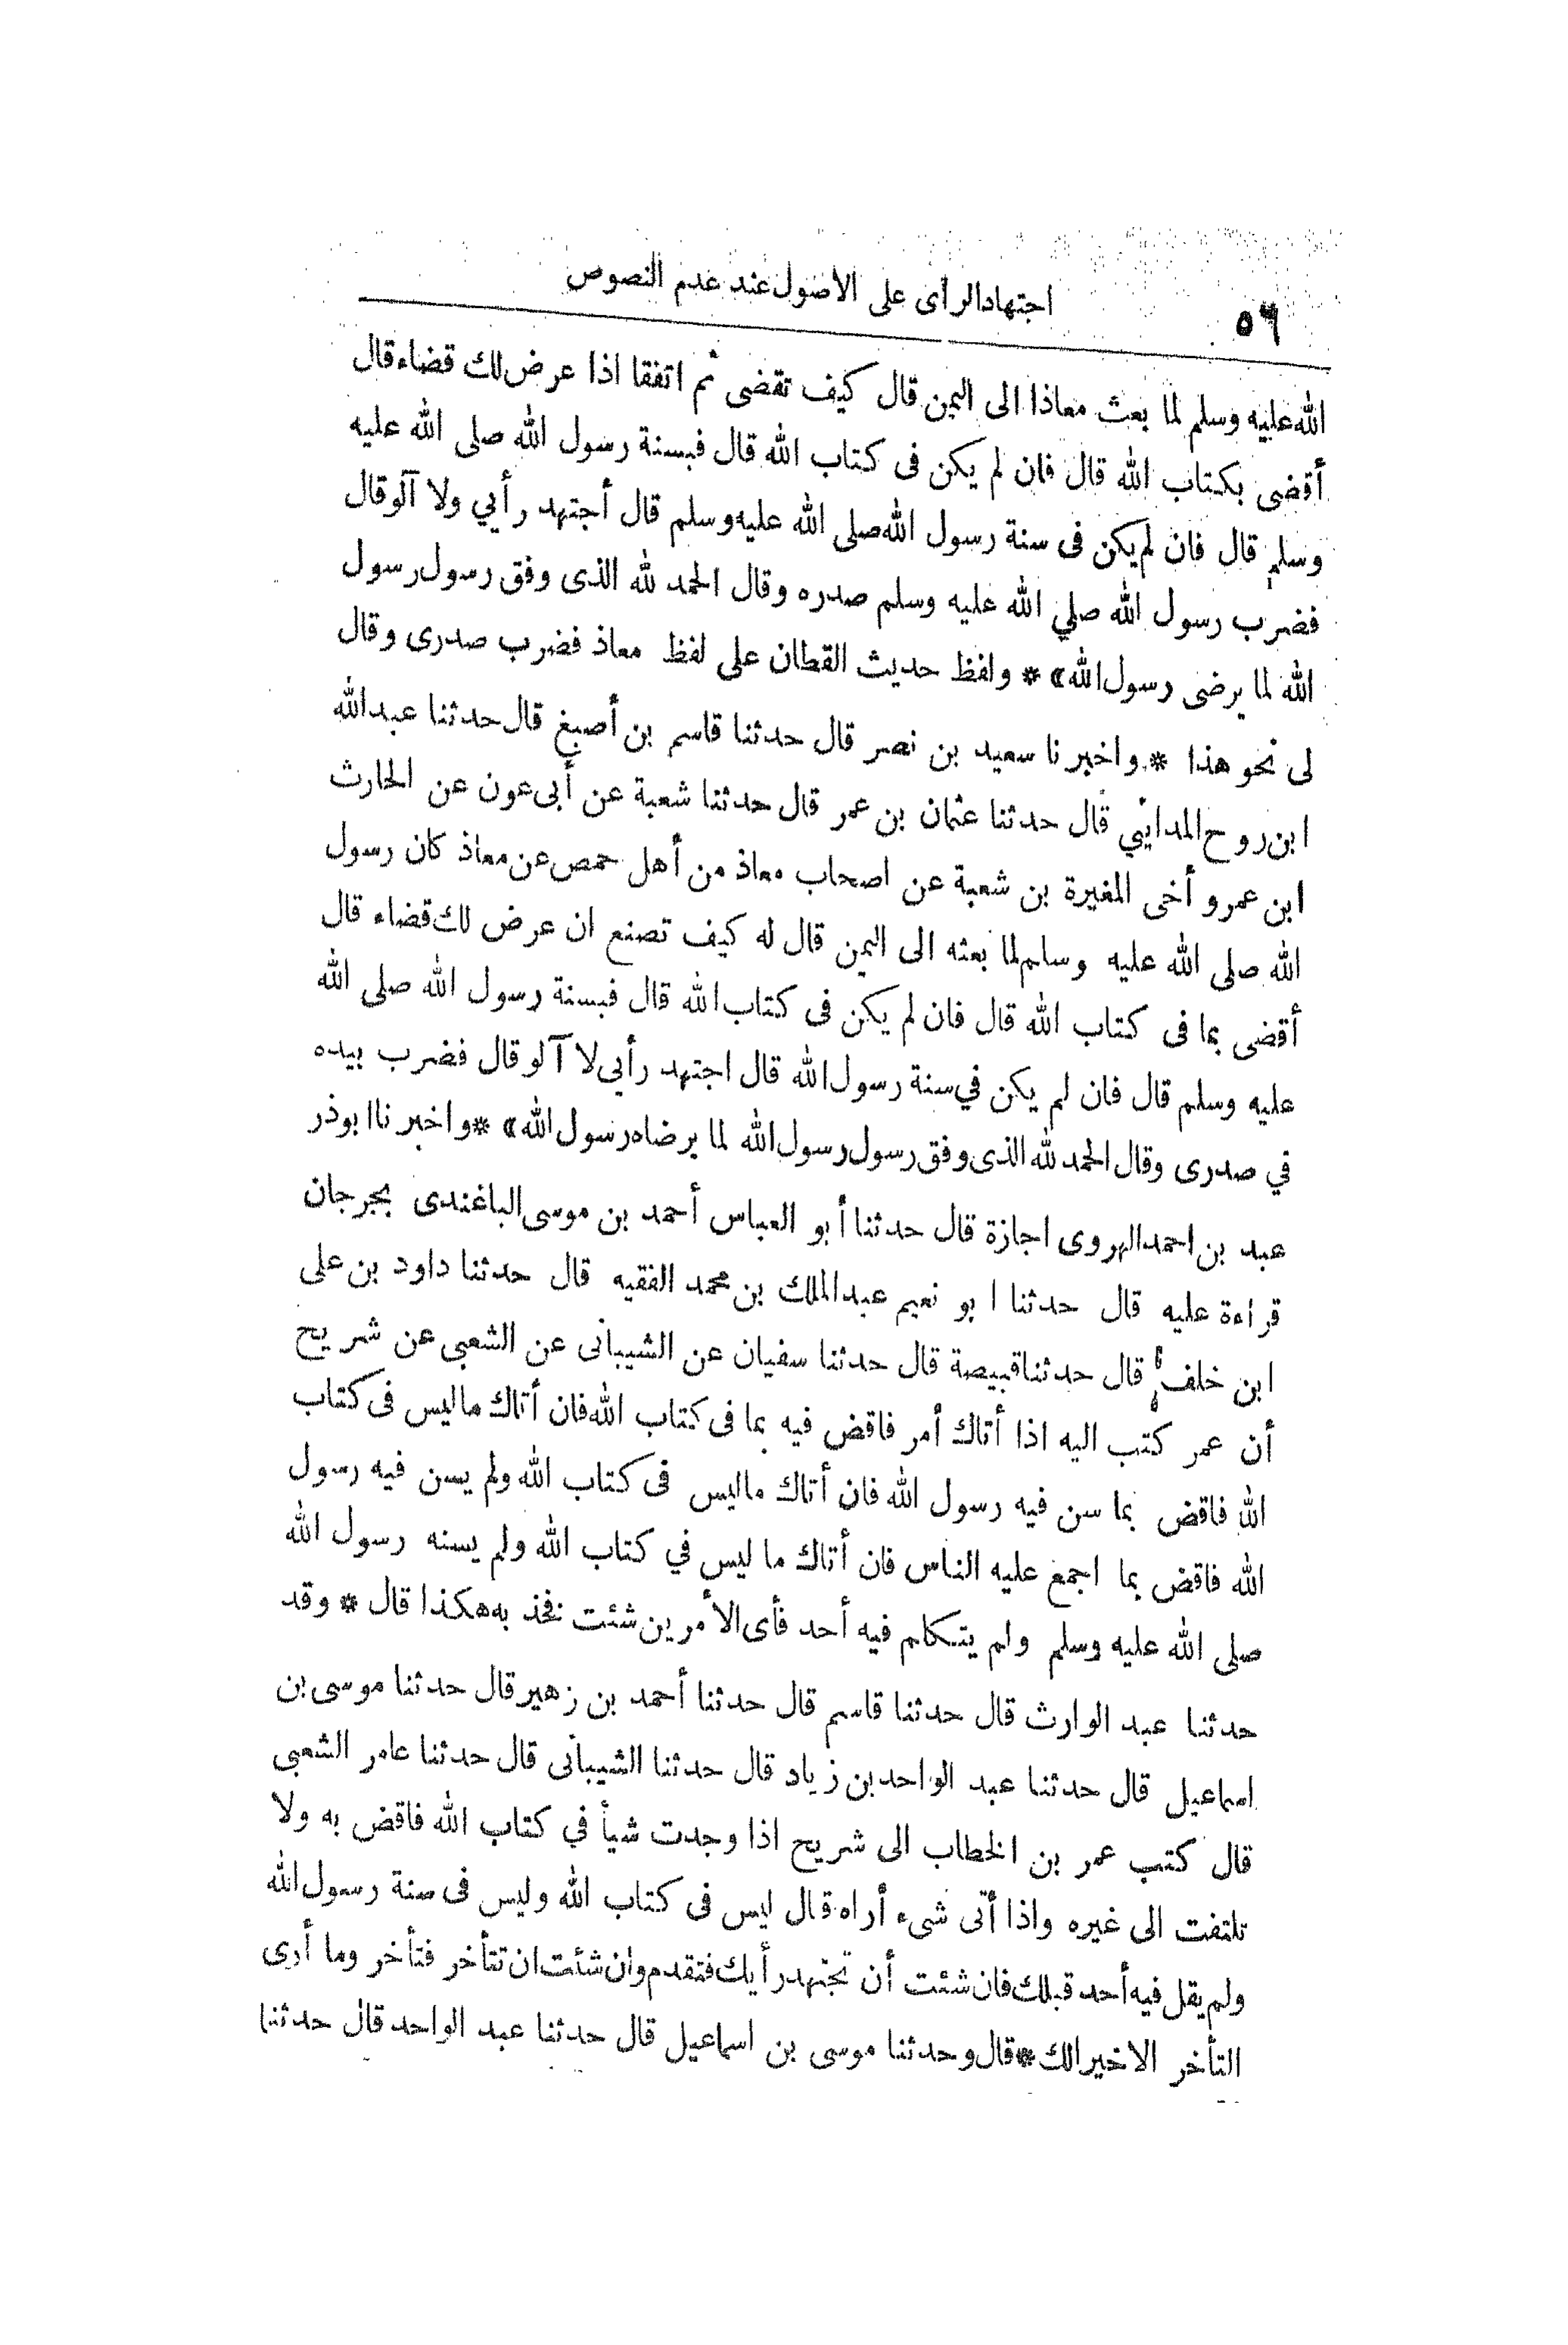 ٥٦ اجتهاد الرأى على الاصول عند عدم النصوص
الله عليه وسلم لما بعث معاذا الى اليمن قال كيف تقضى ثم اتفقا اذا عرض لك قضاء قال
أقضى بكتاب الله قال فان لم يكن فى كتاب الله قال فبسنة رسول الله صلى الله عليه
وسلم قال فان لم يكن فى سنة رسول الله صلى الله عليه وسلم قال أجتهد رأيي ولا آلو قال
فضرب رسول الله صلي الله عليه وسلم صدره وقال الحمد لله الذى وفق رسول رسول
الله لما يرضى رسول الله» * ولفظ حديث القطان على لفظ معاذ فضرب صدرى وقال
لى نحو هذا * واخبرنا سعيد بن نصر قال حدثنا قاسم بن أصبغ قال حدثنا عبد الله
ابن روح المدايني قال حدثنا عثمان بن عمر قال حدثنا شعبة عن أبى عون عن الحارث
ابن عمرو أخى المغيرة بن شعبة عن اصحاب معاذ من أهل حمص عن معاذ كان رسول
الله صلى الله عليه وسلم لما بعثه الى اليمن قال له كيف تصنع ان عرض لك قضاء قال
أقضى بما فى كتاب الله قال فان لم يكن فى كتاب الله قال فبسنة رسول الله صلى الله
عليه وسلم قال فان لم يكن في سنة رسول الله قال اجتهد رأيي لا آلو قال فضرب بيده
في صدرى وقال الحمد لله الذى وفق رسول رسول الله لما يرضاه رسول الله» * واخبرنا ابوذر
عبد بن احمد الهروى اجازة قال حدثنا أبو العباس أحمد بن موسى الباغندى بجرجان
قراءة عليه قال حدثنا ابو نعيم عبد الملك بن محمد الفقيه قال حدثنا داود بن على
ابن خلف قال حدثنا قبيصة قال حدثنا سفيان عن الشيبانى عن الشعبى عن شريح
أن عمر كتب اليه اذا أتاك أمر فاقض فيه بما فى كتاب الله فان أتاك ما ليس فى كتاب
الله فاقض بما سن فيه رسول الله فان أتاك ما ليس فى كتاب الله ولم يسن فيه رسول
الله فاقض بما اجمع عليه الناس فان أتاك ما ليس في كتاب الله ولم يسنه رسول الله
صلى الله عليه وسلم ولم يتكلم فيه أحد فأى الأمرين شئت فخذ به هكذا قال * وقد
حدثنا عبد الوارث قال حدثنا قاسم قال حدثنا أحمد بن زهير قال حدثنا موسى بن
اسماعيل قال حدثنا عبد الواحد بن زياد قال حدثنا الشيبانى قال حدثنا عامر الشعبى
قال كتب عمر بن الخطاب الى شريح اذا وجدت شيأ في كتاب الله فاقض به ولا
تلتفت الى غيره واذا أتى شىء أراه قال ليس فى كتاب الله وليس فى سنة رسول الله
ولم يقل فيه أحد قبلك فان شئت أن تجتهد رأيك فتقدم وان شئت ان تتأخر فتأخر وما أرى
التأخر الا خيرا لك * قال وحدثنا موسى بن اسماعيل قال حدثنا عبد الواحد قال حدثنا